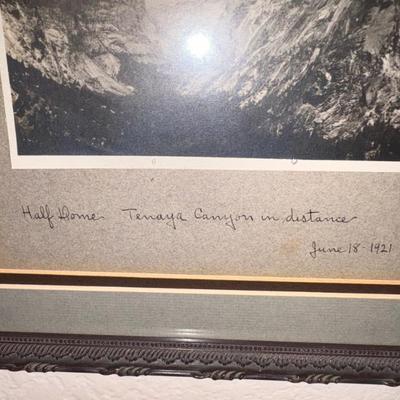 Half Dome. Tenaya Canyon in distance
June 18 - 1921